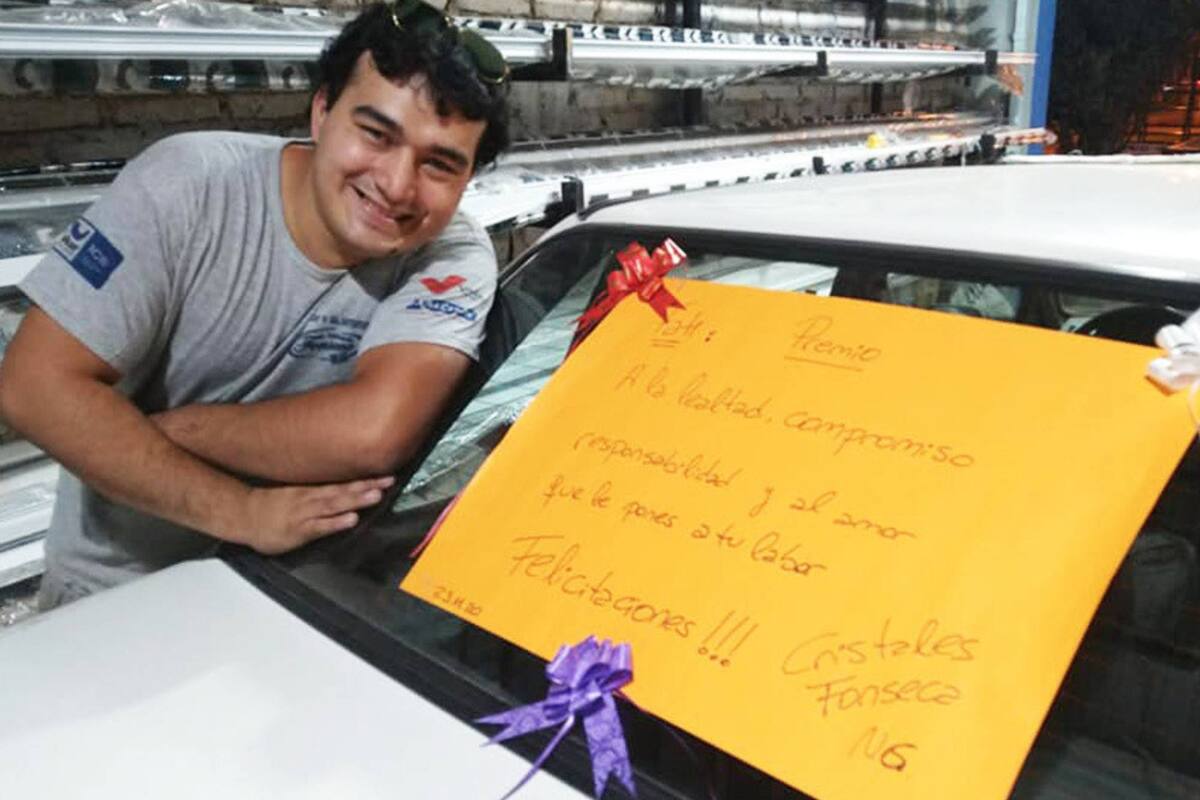 Premio
A la lealtad, compromiso
responsabilidad y al amor
que le pones a tu labor
Felicitaciones!!!
Cristales
Fonseca
NG
23.11.20